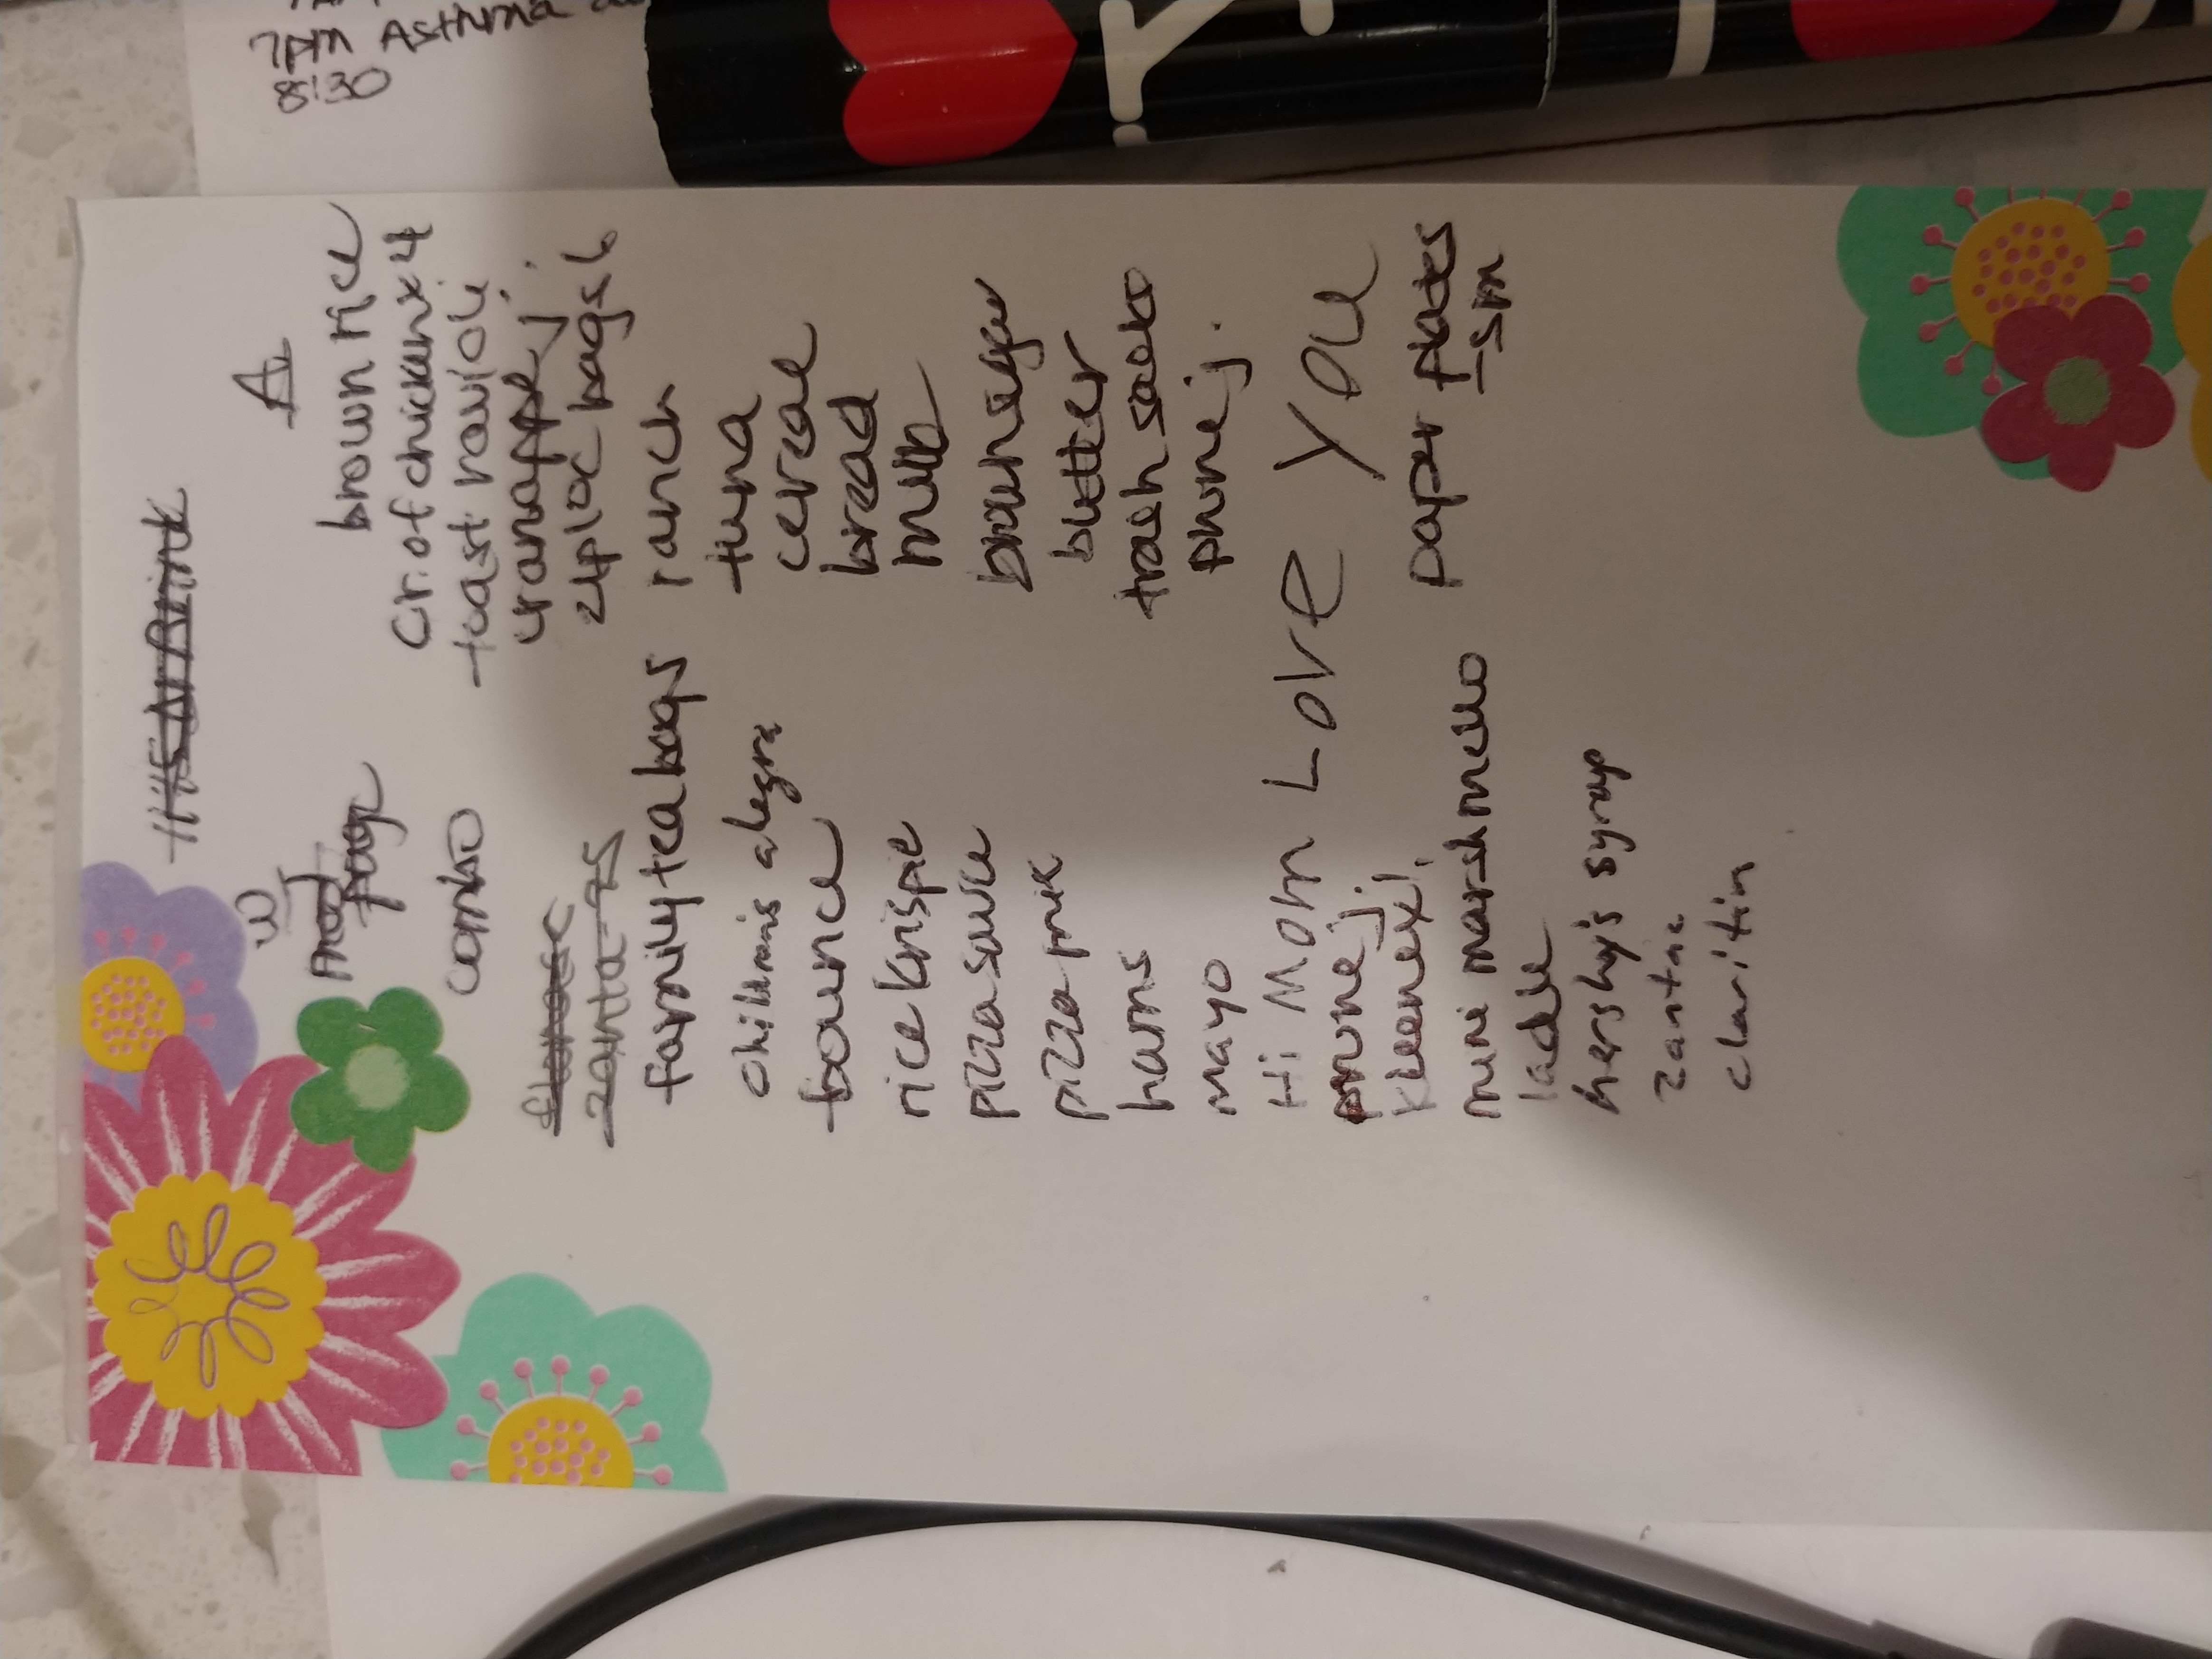 7PM Asthma
8:30
W
combo
family tea bags
childrens alegra
bounce
rice krispie
pizza sauce
pizza mix
hams
mayo
Hi Mom Love You
prune j.
kleenex l.
mini marshmello
ladle
hershy's syrup
zantac
claritin
A
brown rice
cr. of chicken x 4
toast ravioli
cranapple j.
ziploc bags L
ranch
tuna
cereal
bread
milk
butter
trash sacks
prune j.
paper plates
- sm